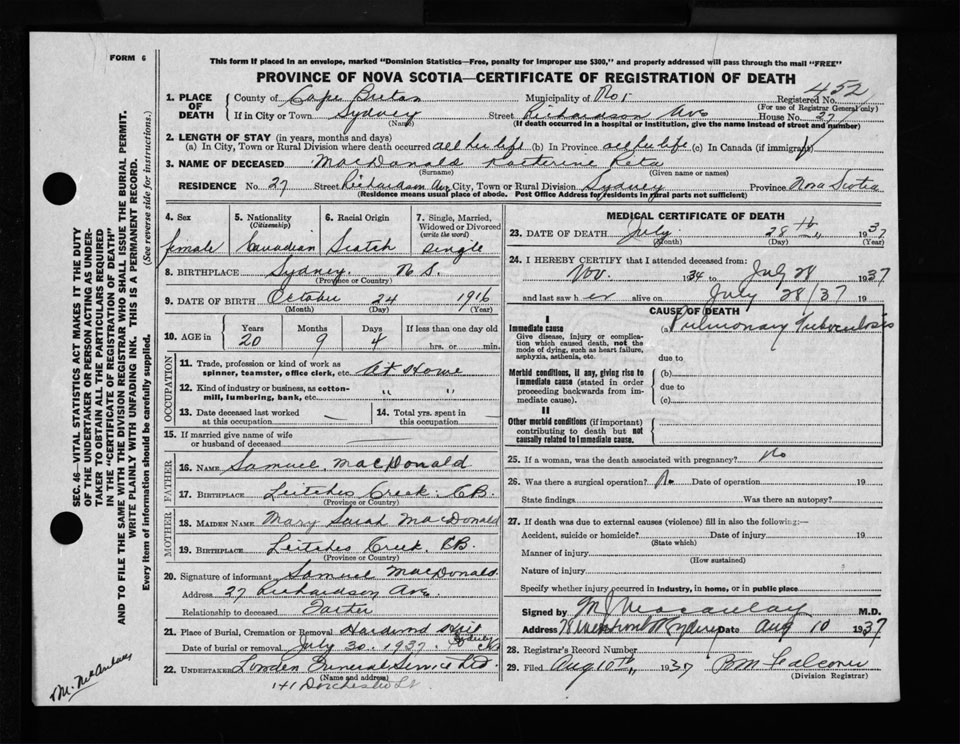 FORM 6
This form if placed in an envelope, marked "Dominion Statistics—Free, penalty for improper use $300," and properly addressed will pass through the mail "FREE"
PROVINCE OF NOVA SCOTIA—CERTIFICATE OF REGISTRATION OF DEATH
452
1. PLACE OF DEATH County of Cape Breton Municipality of Registered No.
(For use of Registrar General only)
If in City or Town Sydney Street Richardson Ave House No. 27
(Name) (If death occurred in a hospital or institution, give the name instead of street and number)
2. LENGTH OF STAY (in years, months and days)
(a) In City, Town or Rural Division where death occurred all her life (b) In Province all her life (c) In Canada (if immigrant)
3. NAME OF DECEASED MacDonald Katherine Reta
(Surname) (Given name or names)
RESIDENCE No. 27 Street Richardson Ave City, Town or Rural Division Sydney Province Nova Scotia
(Residence means usual place of abode. Post Office Address for residents in rural parts not sufficient)
4. Sex 5. Nationality (Citizenship) 6. Racial Origin 7. Single, Married, Widowed or Divorced (write the word)
female Canadian Scotch single
8. BIRTHPLACE Sydney. N S.
(Province or Country)
9. DATE OF BIRTH October 24 1916
(Month) (Day) (Year)
10. AGE in Years Months Days If less than one day old
20 9 4 hrs. or min.
OCCUPATION
11. Trade, profession or kind of work as spinner, teamster, office clerk, etc. At Home
12. Kind of industry or business, as cotton-mill, lumbering, bank, etc. " "
13. Date deceased last worked at this occupation 14. Total yrs. spent in this occupation
15. If married give name of wife or husband of deceased
FATHER
16. NAME Samuel MacDonald
17. BIRTHPLACE Leitches Creek. C.B.
(Province or Country)
MOTHER
18. MAIDEN NAME Mary Sarah MacDonald
19. BIRTHPLACE Leitches Creek, C.B.
(Province or Country)
20. Signature of informant Samuel MacDonald
Address 27 Richardson Ave
Relationship to deceased Father
21. Place of Burial, Cremation or Removal
Date of burial or removal July 30. 1937.
22. UNDERTAKER Lowden Funeral Service Ltd.
(Name and address)
141 Dorchester St
MEDICAL CERTIFICATE OF DEATH
23. DATE OF DEATH July 28th 1937
(Month) (Day) (Year)
24. I HEREBY CERTIFY that I attended deceased from:
Nov. 1934 to July 28 1937
and last saw her alive on July 28/37 19
CAUSE OF DEATH
I
Immediate cause (a) Pulmonary Tuberculosis
Give disease, injury or complication which caused death, not the mode of dying, such as heart failure, asphyxia, asthenia, etc.
due to
Morbid conditions, if any, giving rise to immediate cause (stated in order proceeding backwards from immediate cause).
(b)
due to
(c)
II
Other morbid conditions (if important) contributing to death but not causally related to immediate cause.
25. If a woman, was the death associated with pregnancy? No
26. Was there a surgical operation? No Date of operation 19
State findings Was there an autopsy?
27. If death was due to external causes (violence) fill in also the following:—
Accident, suicide or homicide? Date of injury 19
(State which)
Manner of injury
(How sustained)
Nature of injury
Specify whether injury occurred in industry, in home, or in public place
Signed by M J Macaulay M.D.
Address Date Aug 10 1937
28. Registrar's Record Number
29. Filed Aug 10th 1937 B M Falconer
(Division Registrar)
SEC. 46—VITAL STATISTICS ACT MAKES IT THE DUTY
OF THE UNDERTAKER OR PERSON ACTING AS UNDER-
TAKER TO OBTAIN ALL THE PARTICULARS REQUIRED
IN THE "CERTIFICATE OF REGISTRATION OF DEATH"
AND TO FILE THE SAME WITH THE DIVISION REGISTRAR WHO SHALL ISSUE THE BURIAL PERMIT.
WRITE PLAINLY WITH UNFADING INK. THIS IS A PERMANENT RECORD.
Every item of information should be carefully supplied. (See reverse side for instructions.)